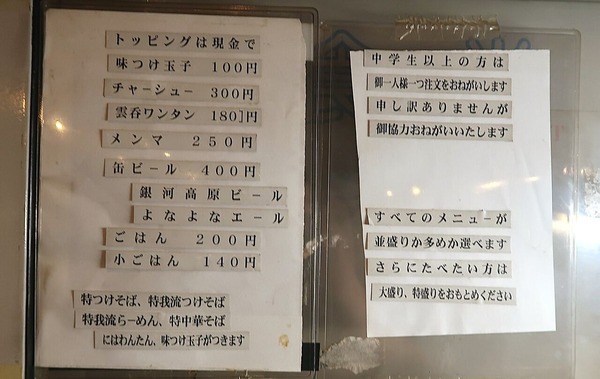 トッピングは現金で
味つけ玉子 100円
チャーシュー 300円
雲呑ワンタン 180円
メンマ 250円
缶ビール 400円
銀河高原ビール
よなよなエール
ごはん 200円
小ごはん 140円
特つけそば、特我流つけそば
特我流らーめん、特中華そば
にはわんたん、味つけ玉子がつきます
中学生以上の方は
御一人様一つ注文をおねがいします
申し訳ありませんが
御協力おねがいいたします
すべてのメニューが
並盛りか多めか選べます
さらにたべたい方は
大盛り、特盛りをおもとめください